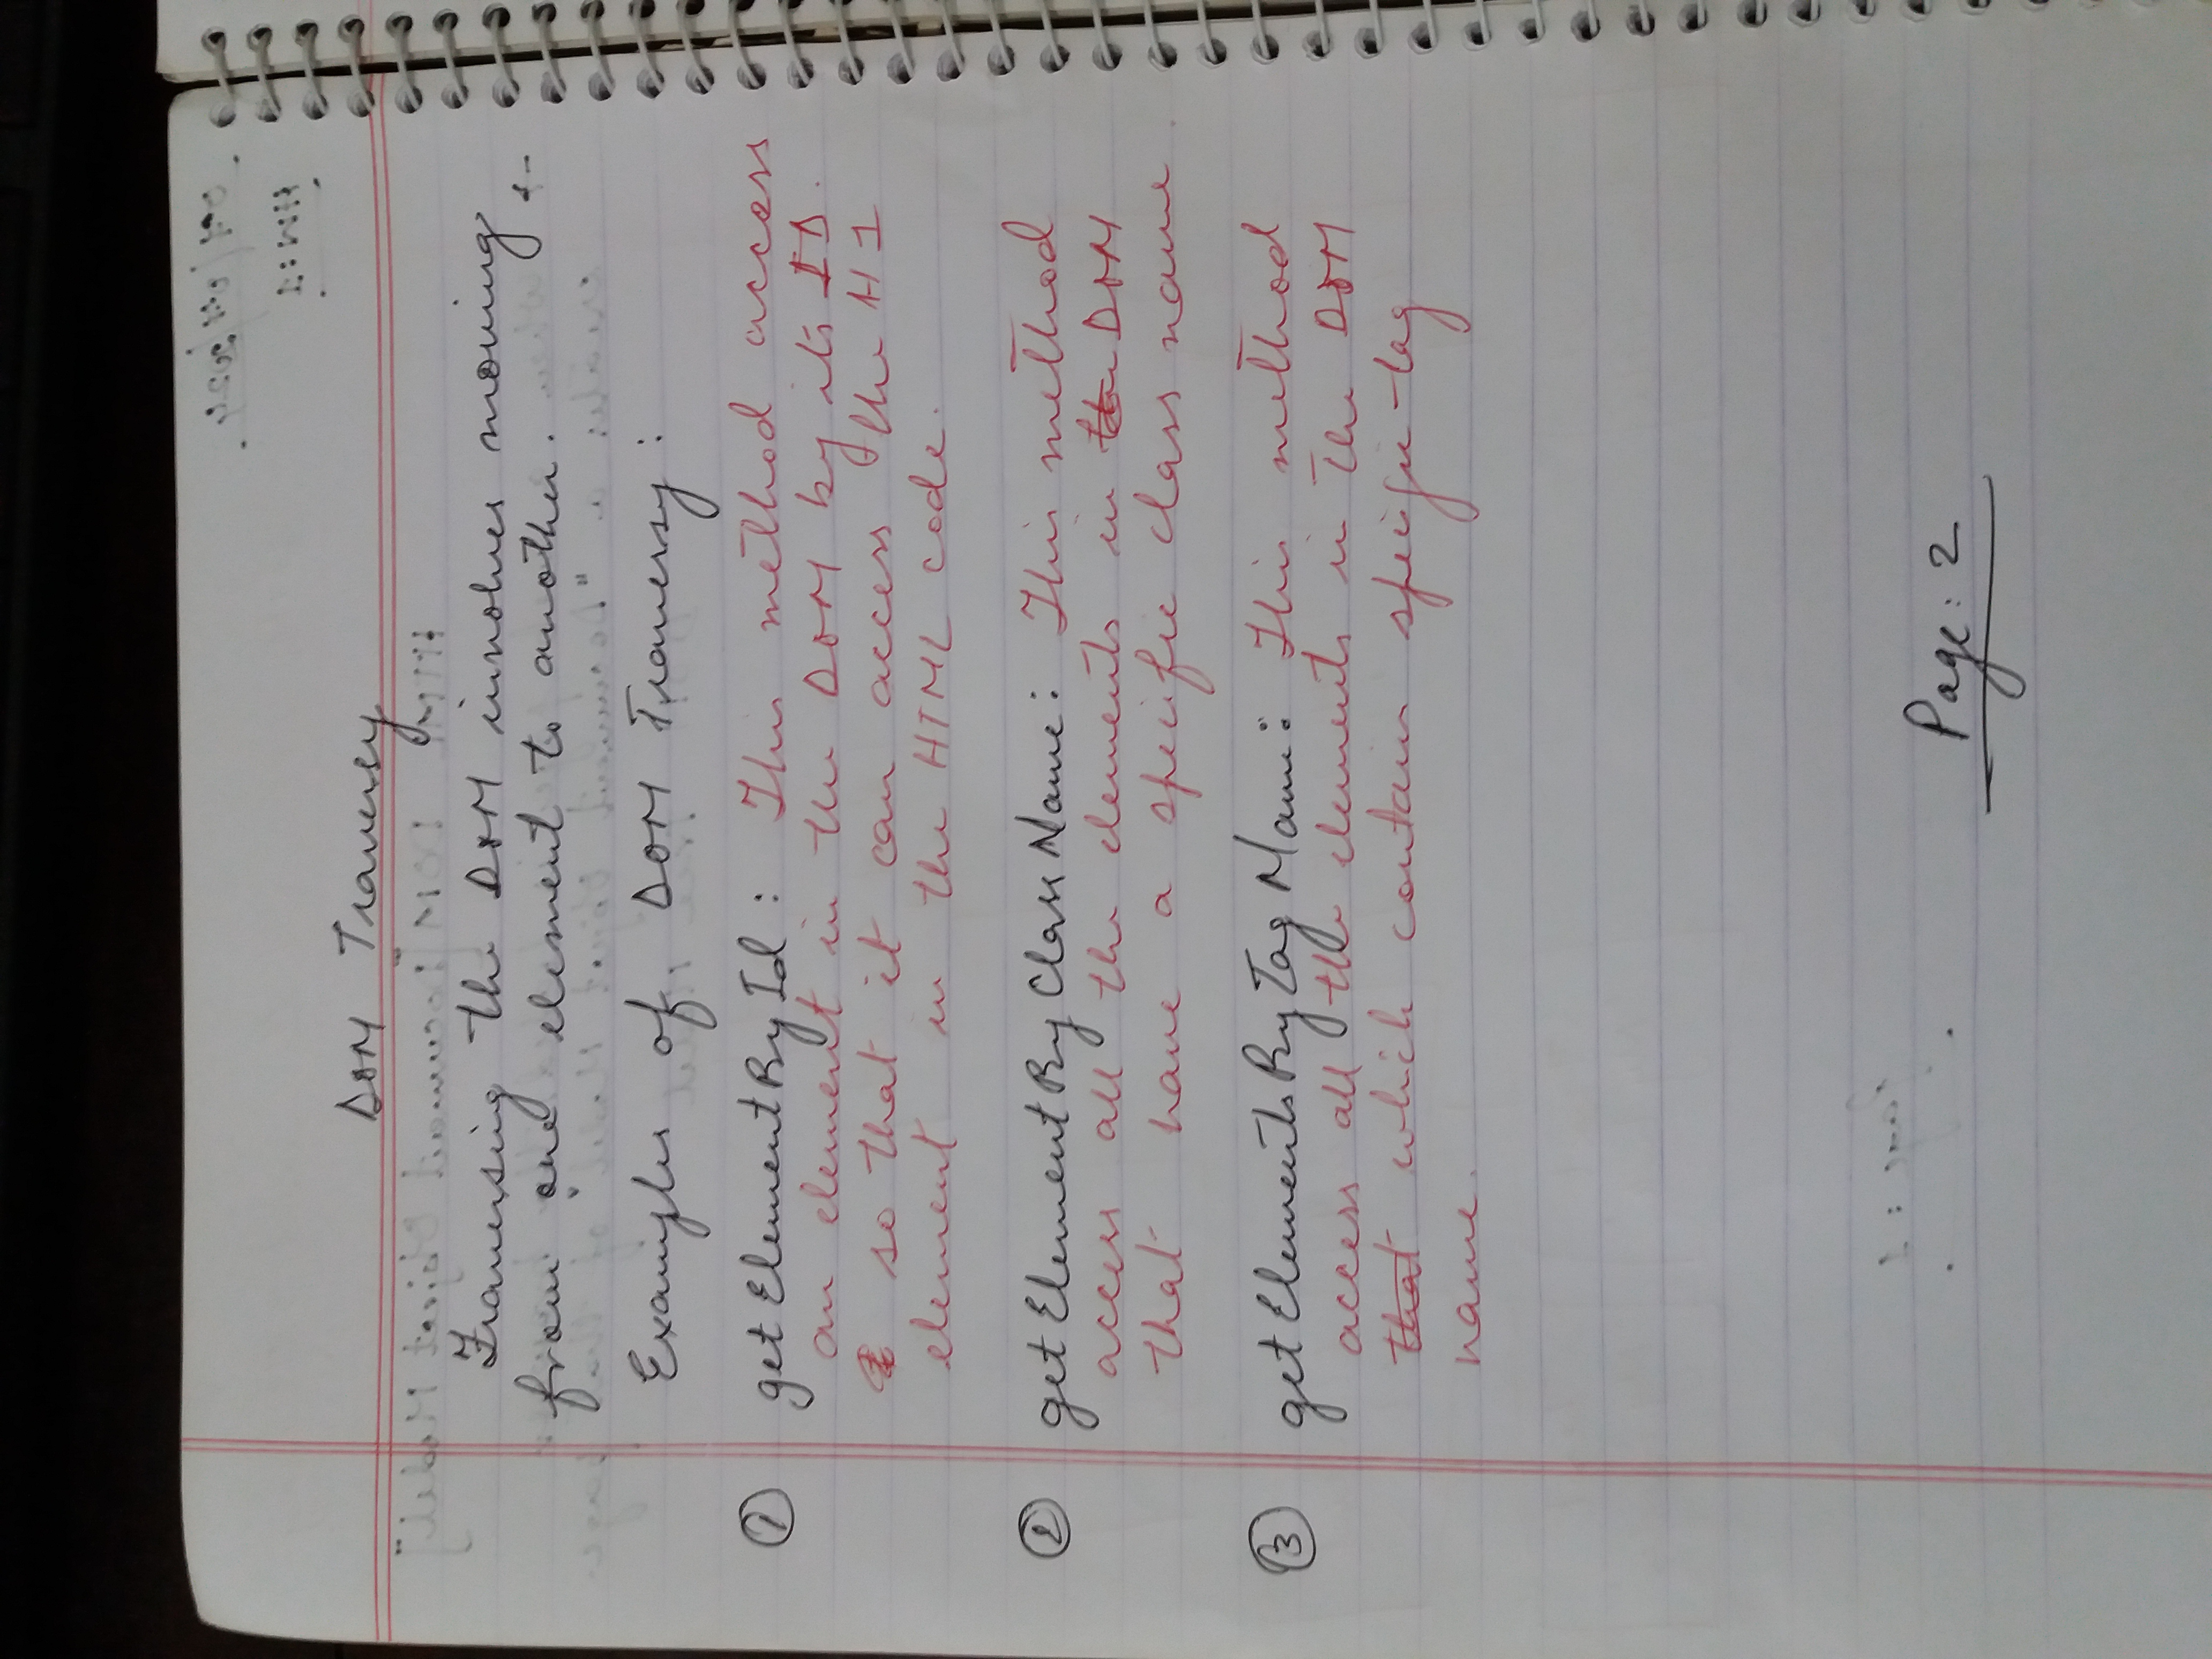 DOM Traversy
Traversing the DOM involves moving
from one element to another.
Examples of DOM Traversy:
① getElementById : This method access
an element in the DOM by its ID.
so that it can access the H1
element in the HTML code.
② getElementByClassName: This method
access all the elements in the DOM
that have a specific class name.
③ getElementsByTagName: This method
access all the elements in the DOM
that which contain specific tag
name.
Page: 2